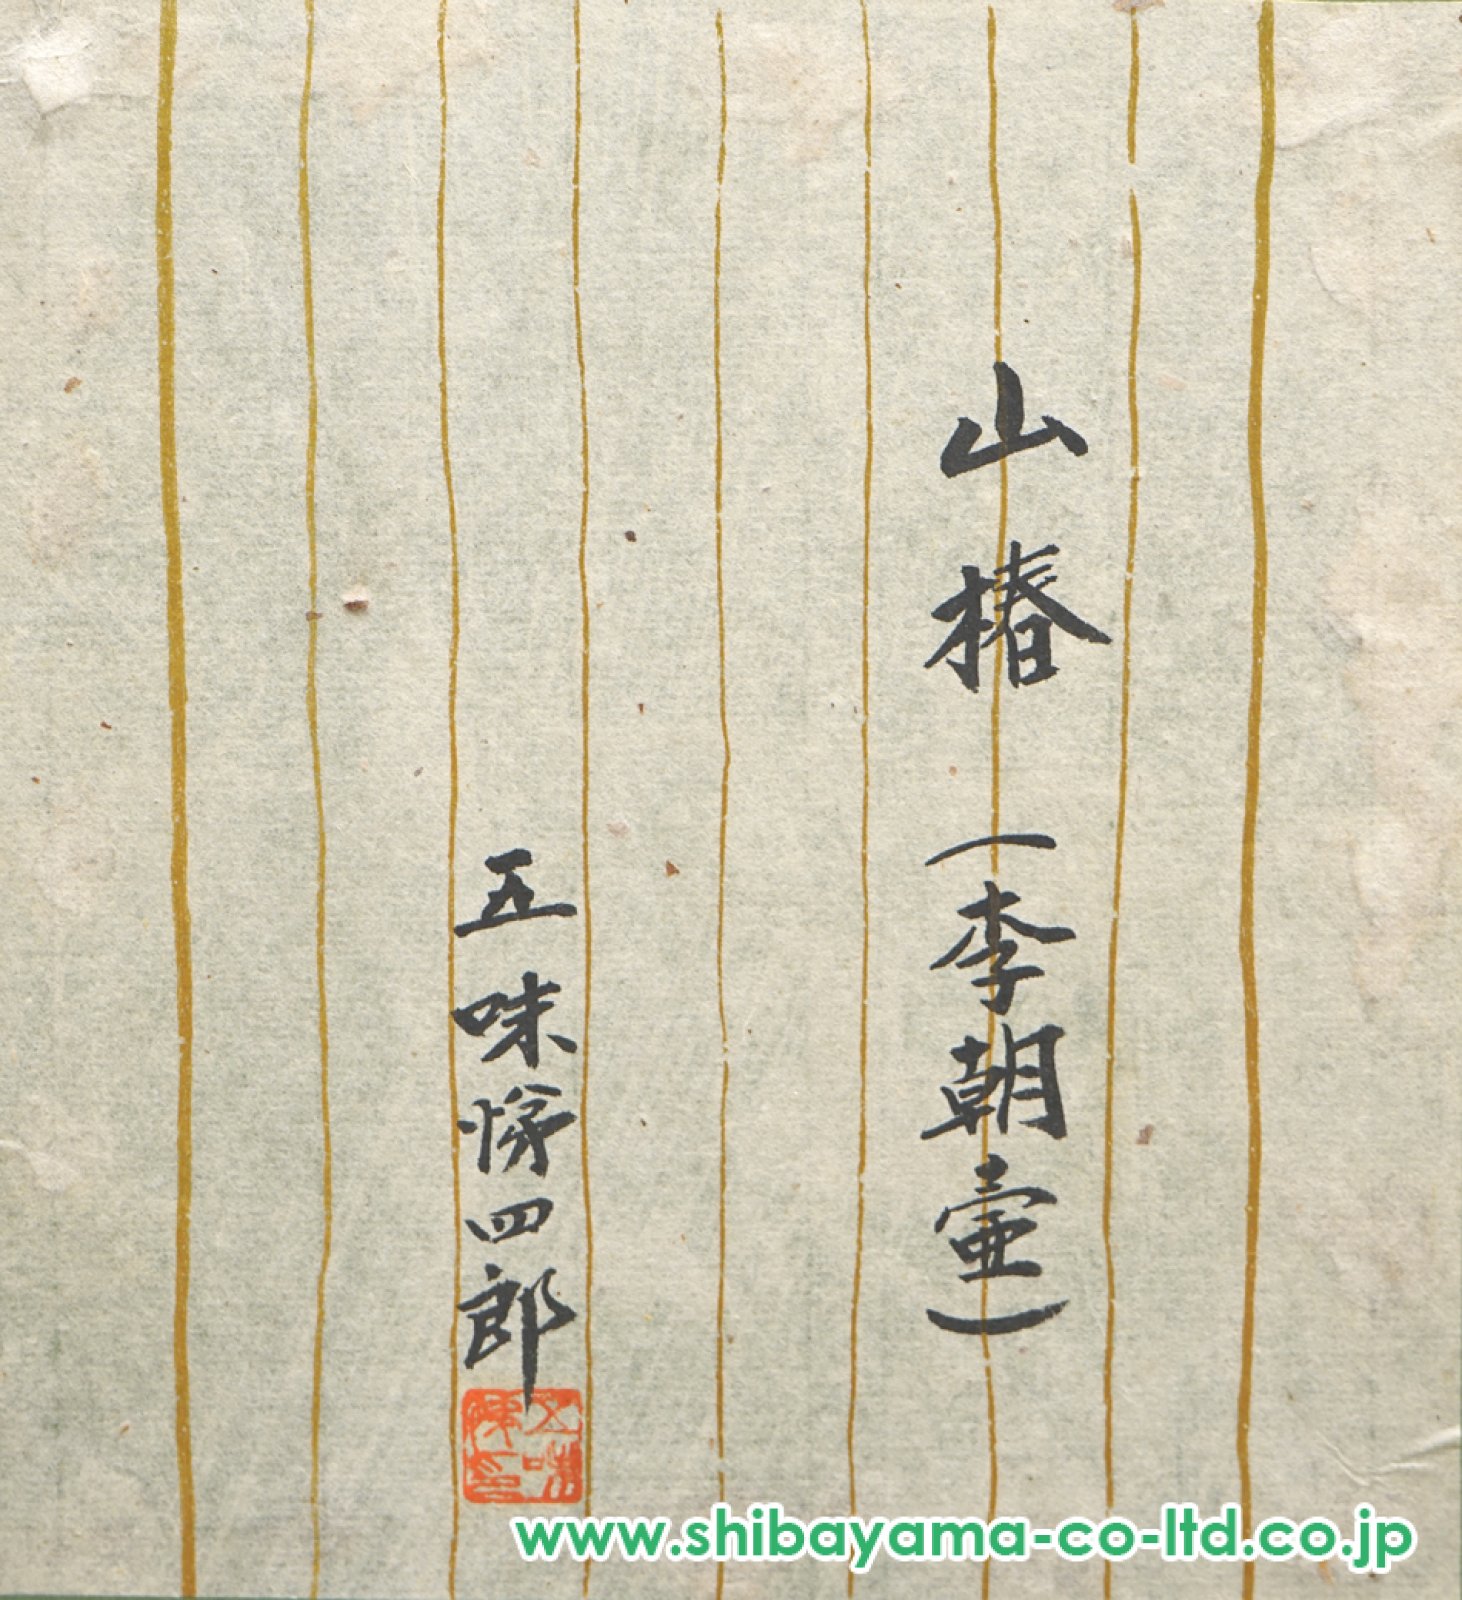 山椿(李朝壷)
五味悌四郎
www.shibayama-co-ltd.co.jp